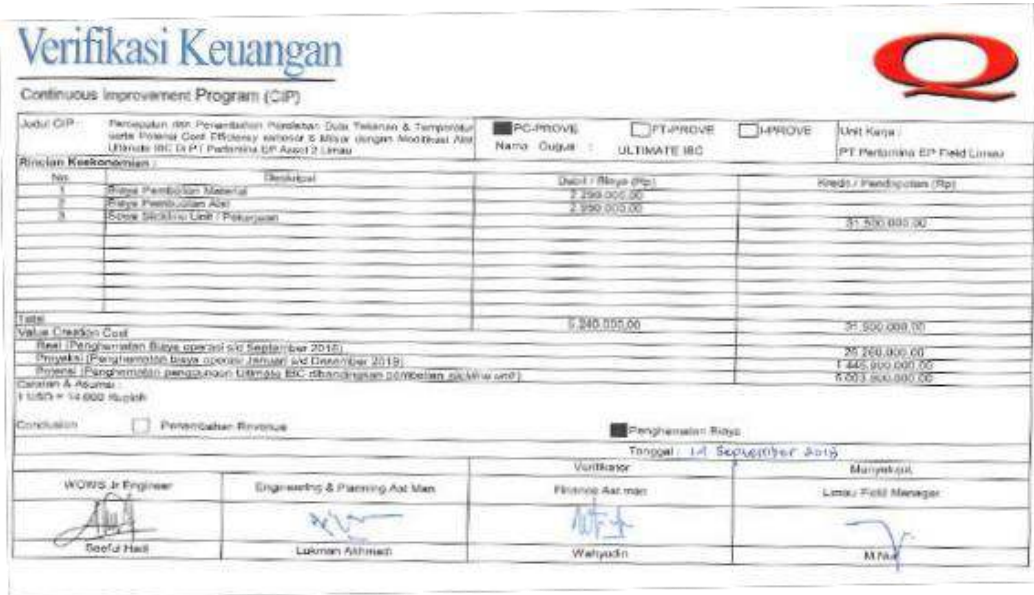 Verifikasi Keuangan
Continuous Improvement Program (CIP)
Judul CIP : Percepatan dan Penambahan Perolehan Data Tekanan & Temperatur
serta Potensi Cost Efficiency sebesar 6 Milyar dengan Modifikasi Alat
Ultimate IBC Di PT Pertamina EP Asset 2 Limau
PC-PROVE FT-PROVE I-PROVE
Nama Gugus : ULTIMATE IBC
Unit Kerja :
PT Pertamina EP Field Limau
Rincian Keekonomian :
No. Deskripsi Debit / Biaya (Rp) Kredit / Pendapatan (Rp)
1 Biaya Pembelian Material 2.290.000,00
2 Biaya Pembuatan Alat 2.950.000,00
3 Sewa Slickline Unit / Pekerjaan 31.500.000,00
Total 5.240.000,00 31.500.000,00
Value Creation Cost
Real (Penghematan Biaya operasi s/d September 2018) 26.260.000,00
Proyeksi (Penghematan biaya operasi Januari s/d Desember 2019) 1.445.900.000,00
Potensi (Penghematan penggunaan Ultimate IBC dibandingkan pembelian slickline unit) 6.003.900.000,00
Catatan & Asumsi :
1 USD = 14.000 Rupiah
Conclusion Penambahan Revenue Penghematan Biaya
Tanggal : 14 September 2018
Verifikator Menyetujui
WOWS Jr Engineer Engineering & Planning Ast Man Finance Ast man Limau Field Manager
Saeful Hadi Lukman Akhmadi Wahyudin M.Nur